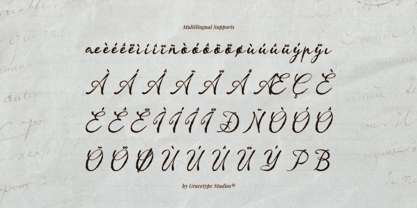 Multilingual Supports
æèéêëìíîïñòóôõöøùúûüýþÿı
À Á Â Ã Ä Å Æ Ç È
É Ê Ë Ì Í Î Ï Ð Ñ Ò Ó Ô
Õ Ö Ø Ù Ú Û Ü Ý Þ ß
by Gracetype Studios®